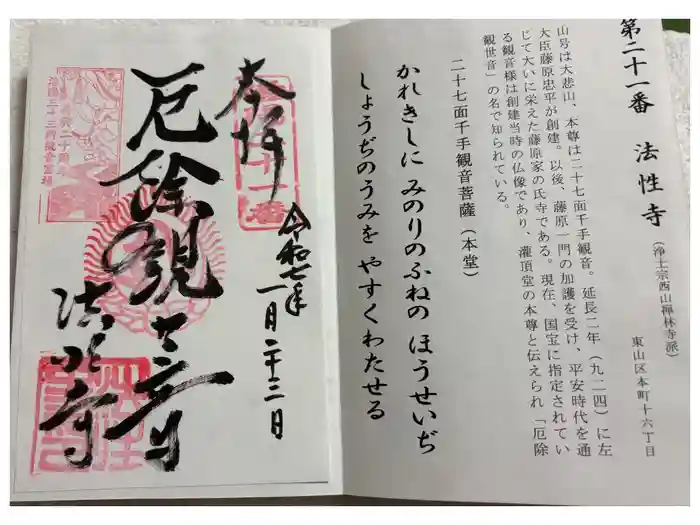 第二十一番 法性寺
(浄土宗西山禅林寺派)
東山区本町十六丁目
山号は大悲山、本尊は二十七面千手観音。延長二年(九二四)に左
大臣藤原忠平が創建。以後、藤原一門の加護を受け、平安時代を通
じて大いに栄えた藤原家の氏寺である。現在、国宝に指定されてい
る観音様は創建当時の仏像であり、灌頂堂の本尊と伝えられ「厄除
観世音」の名で知られている。
二十七面千手観音菩薩(本堂)
かれきしに みのりのふねの ほうせいぢ
しょうぢのうみを やすくわたせる
奉拝
令和七年
一月二十三日
厄除観世音
法性寺
洛陽三十三所観音霊場